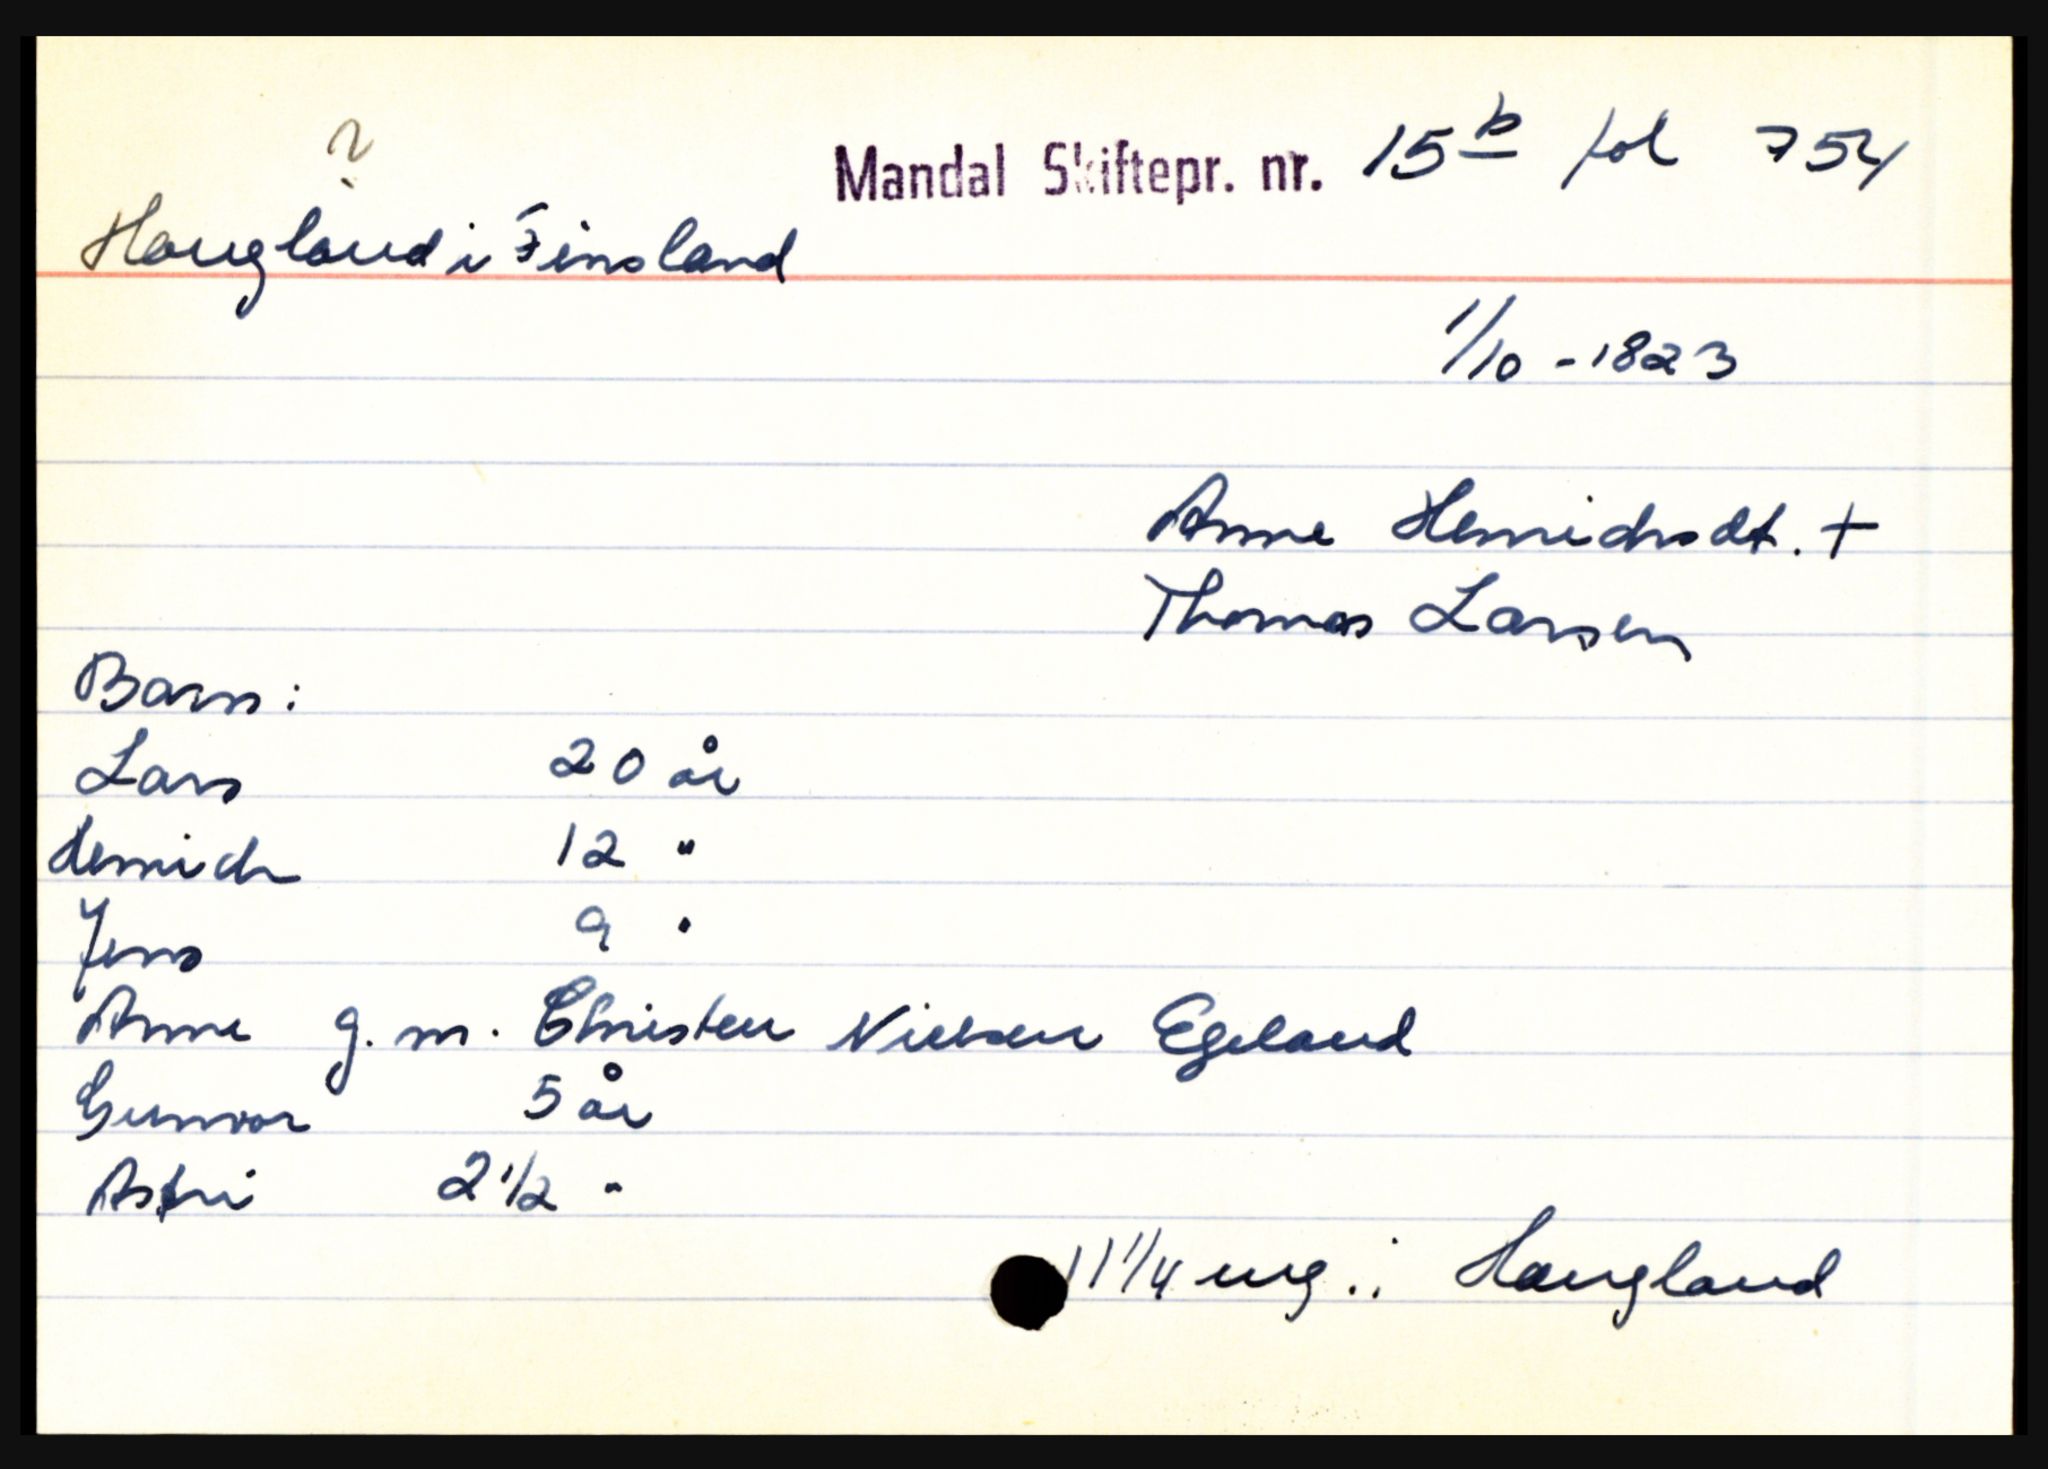 ?
Mandal Skiftepr. nr. 15 b fol 754
Haugland i Finsland
1/10 - 1823
Anne Henrichsdt. +
Thomas Larsen
Barn:
Lars 20 år
Henrich 12 "
Jens 9 "
Anne g. m. Christen Nielsen Egeland
Gunvor 5 år
Astri 2 1/2 "
11 1/4 mg. i Haugland